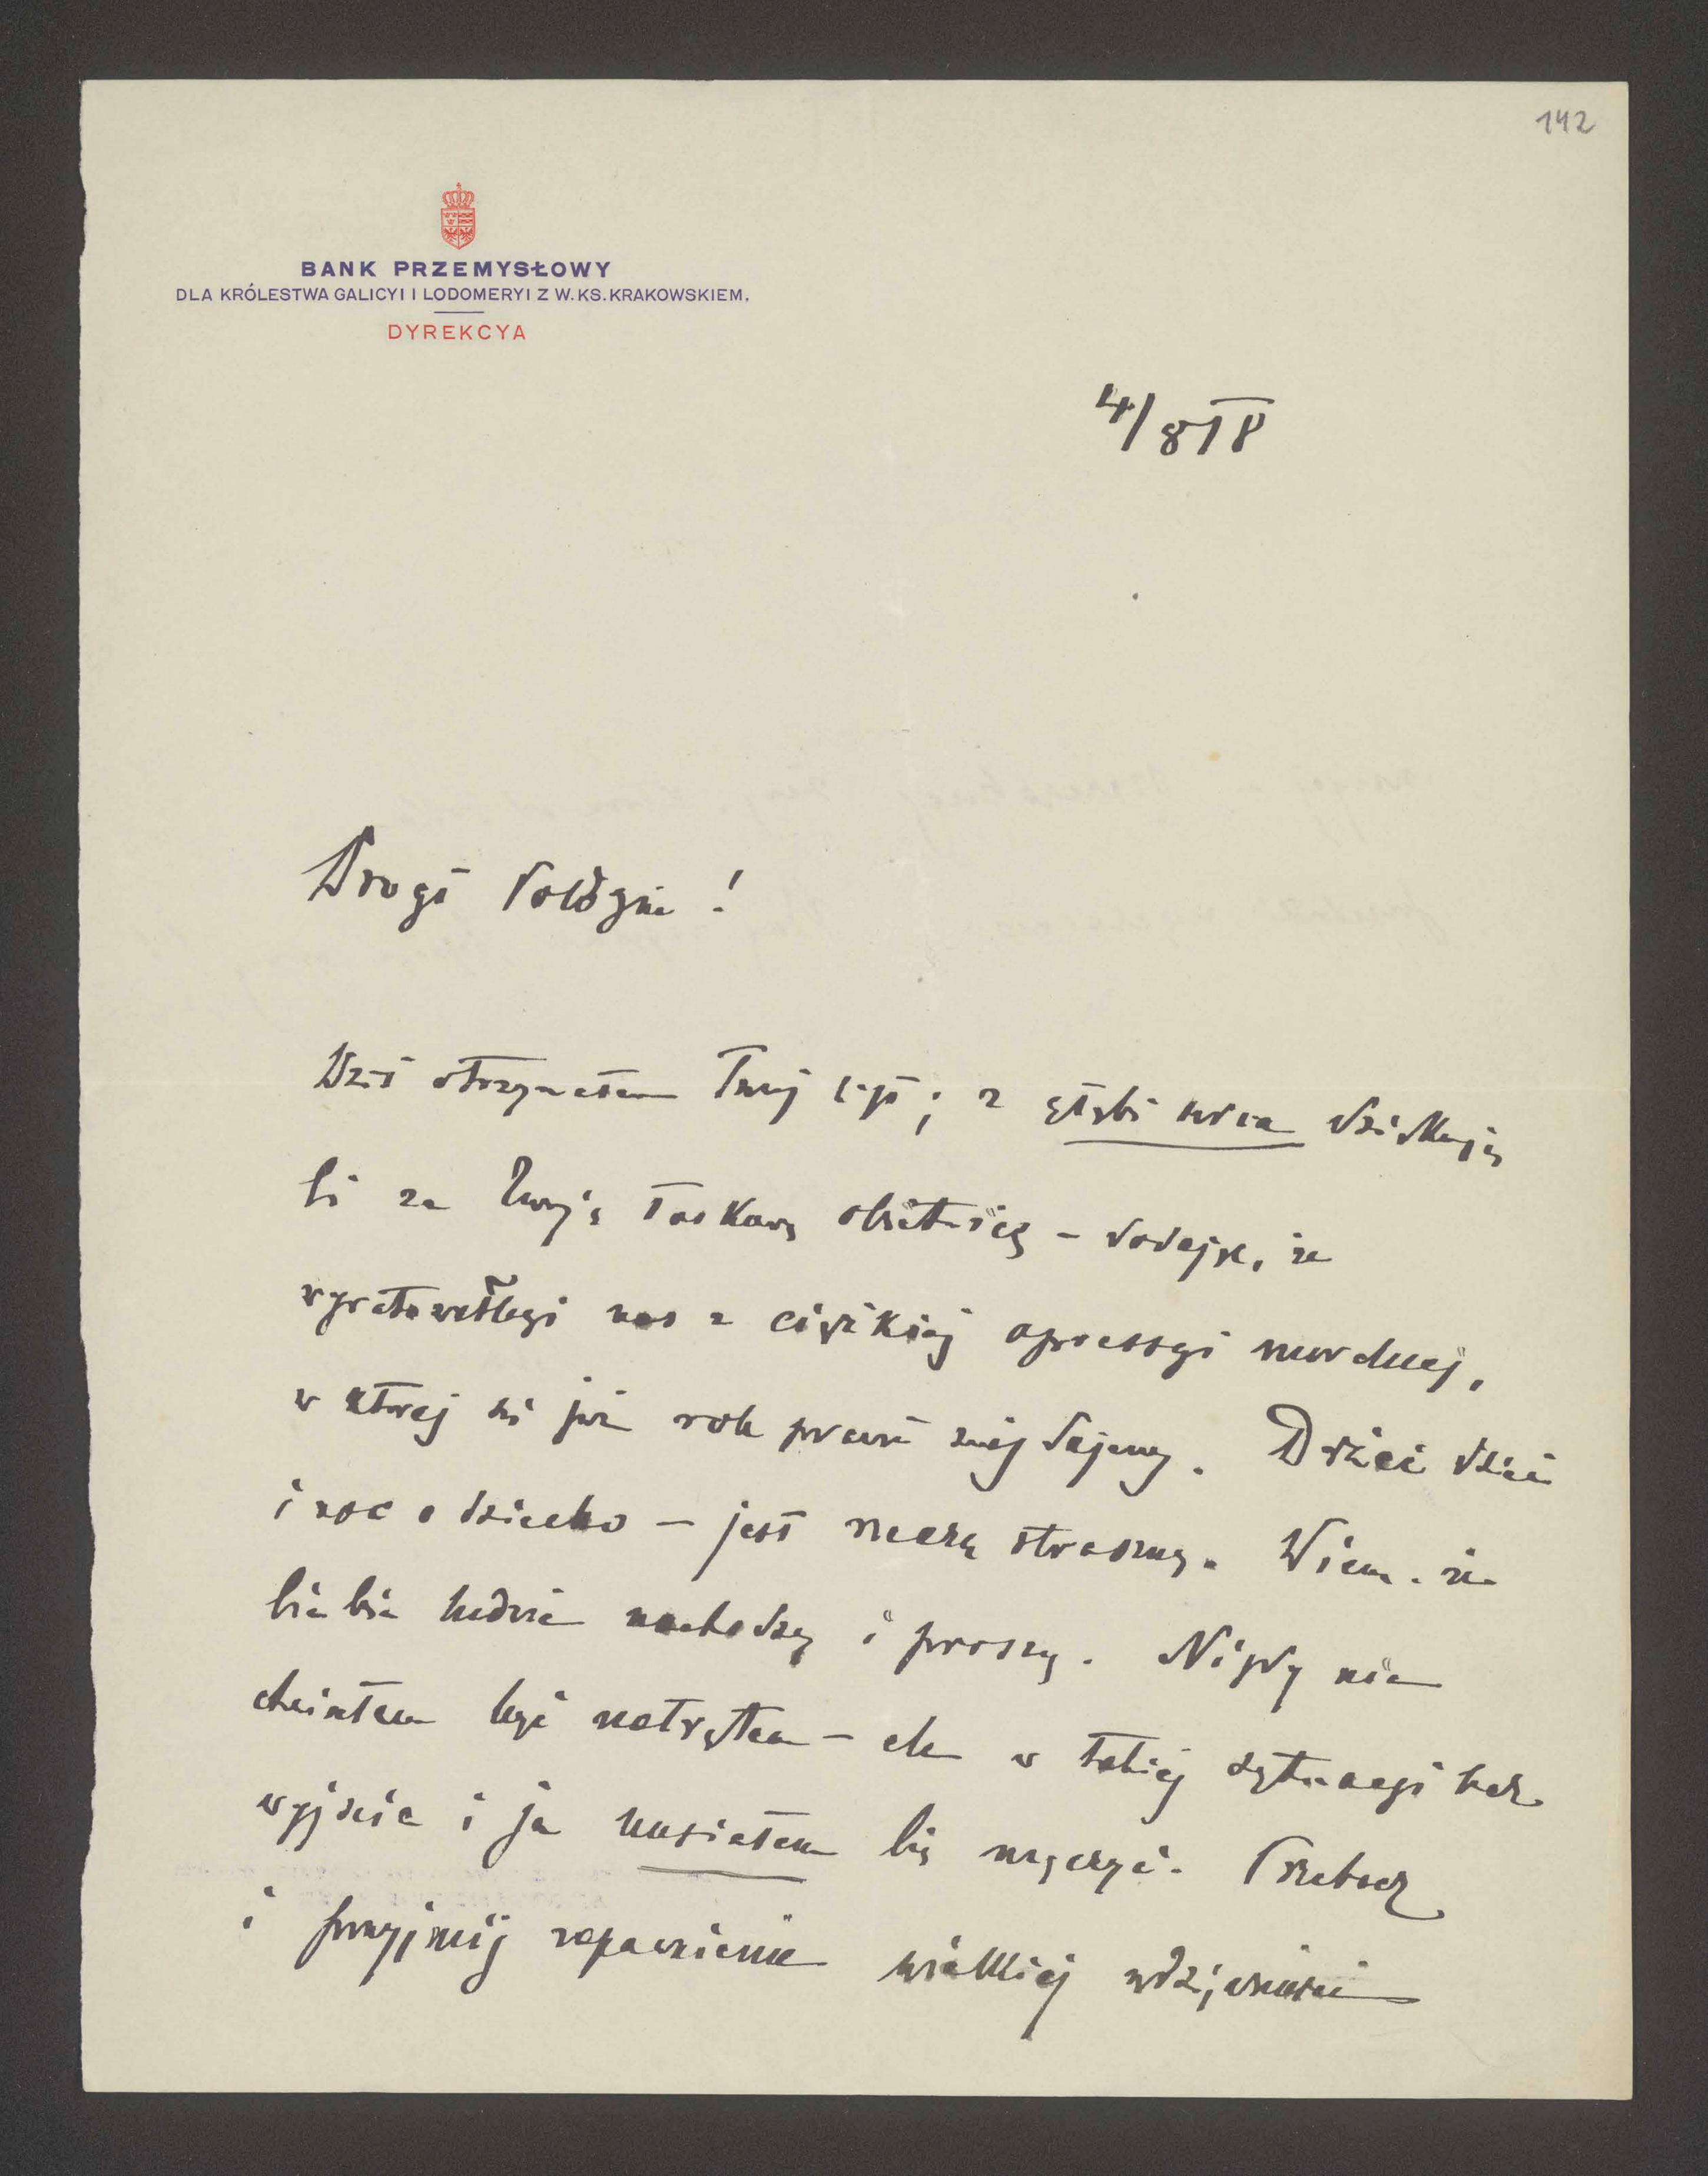 142
BANK PRZEMYSŁOWY
DLA KRÓLESTWA GALICYI I LODOMERYI Z W. KS. KRAKOWSKIEM.
DYREKCYA
4/8 18
Drogi
Dziś otrzymałem Twój list; z głębi serca dziękuję
Ci za Twoją łaskawą obietnicę – dodaję, że
wyratowałbyś nas z ciężkiej opressyi
w której się już rok prawie znajdujemy. Drżeć dzień
i noc o dziecko – jest męką straszną. Wiem, że
Ciebie ludzie nachodzą i proszą. Nigdy nie
chciałem być natrętem – ale w takiej sytuacyi bez
wyjścia i ja musiałem Cię męczyć. Przebacz
i przyjmij zapewnienie wielkiej wdzięczności